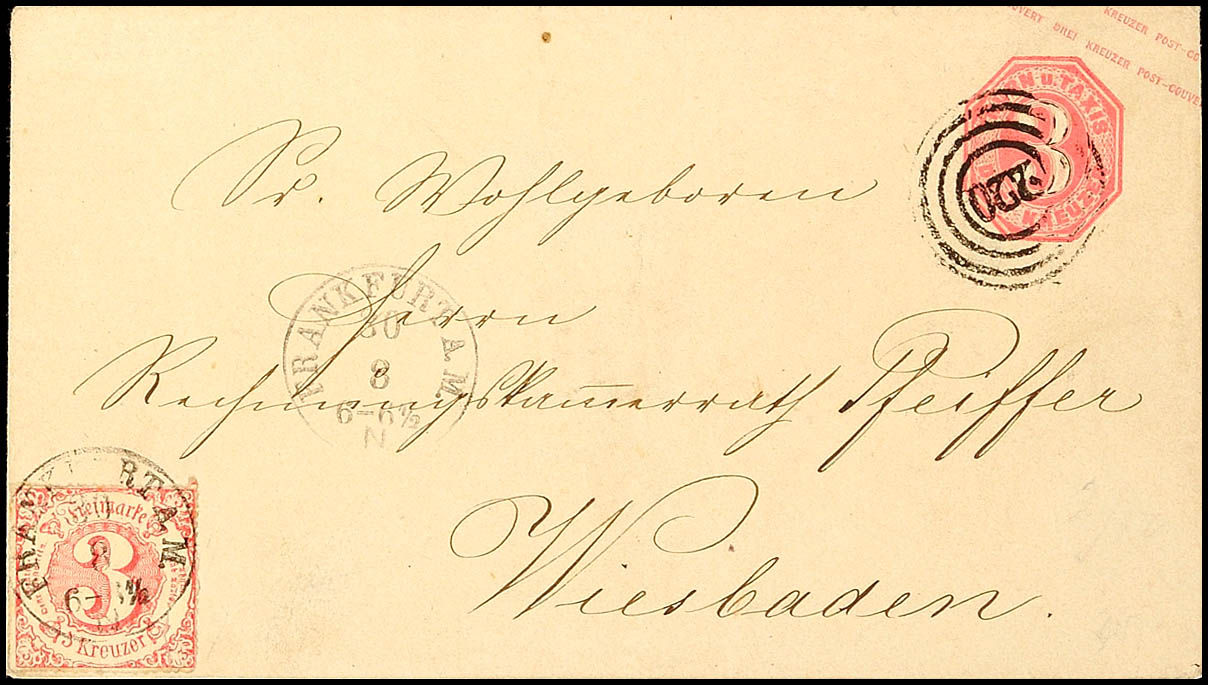 KREUZER POST-CO
OUVERT DREI KREUZER POST-COUVER
U. TAXIS
3
KREUZ
220
Sr. Wohlgeboren
Herrn
Rechnungskammerrath Pfeiffer
Wiesbaden.
FRANKFURT A. M.
30
8
6-6½
N
FRANKFURT A. M.
8
6-6½
Freimarke
3
3 Kreuzer